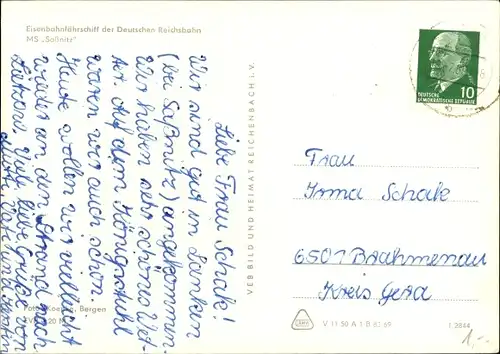 Eisenbahnfährschiff der Deutschen Reichsbahn
MS „Saßnitz"
Liebe Frau Schak!
Wir sind gut in Lanken
(bei Saßnitz) angekommen.
Wir haben sehr schönes Wet-
ter. Auf dem Königsstuhl
waren wir auch schon.
Heute wollen wir vielleicht
wieder an den Strand nach
viele liebe Grüße von
Bergen
VEB BILD UND HEIMAT REICHENBACH i. V.
10
DEUTSCHE
DEMOKRATISCHE REPUBLIK
Frau
Irma Schak
6501 Brahmenau
Kreis Gera
V 11 50 A 1 B 83 69
1 2844
1,-